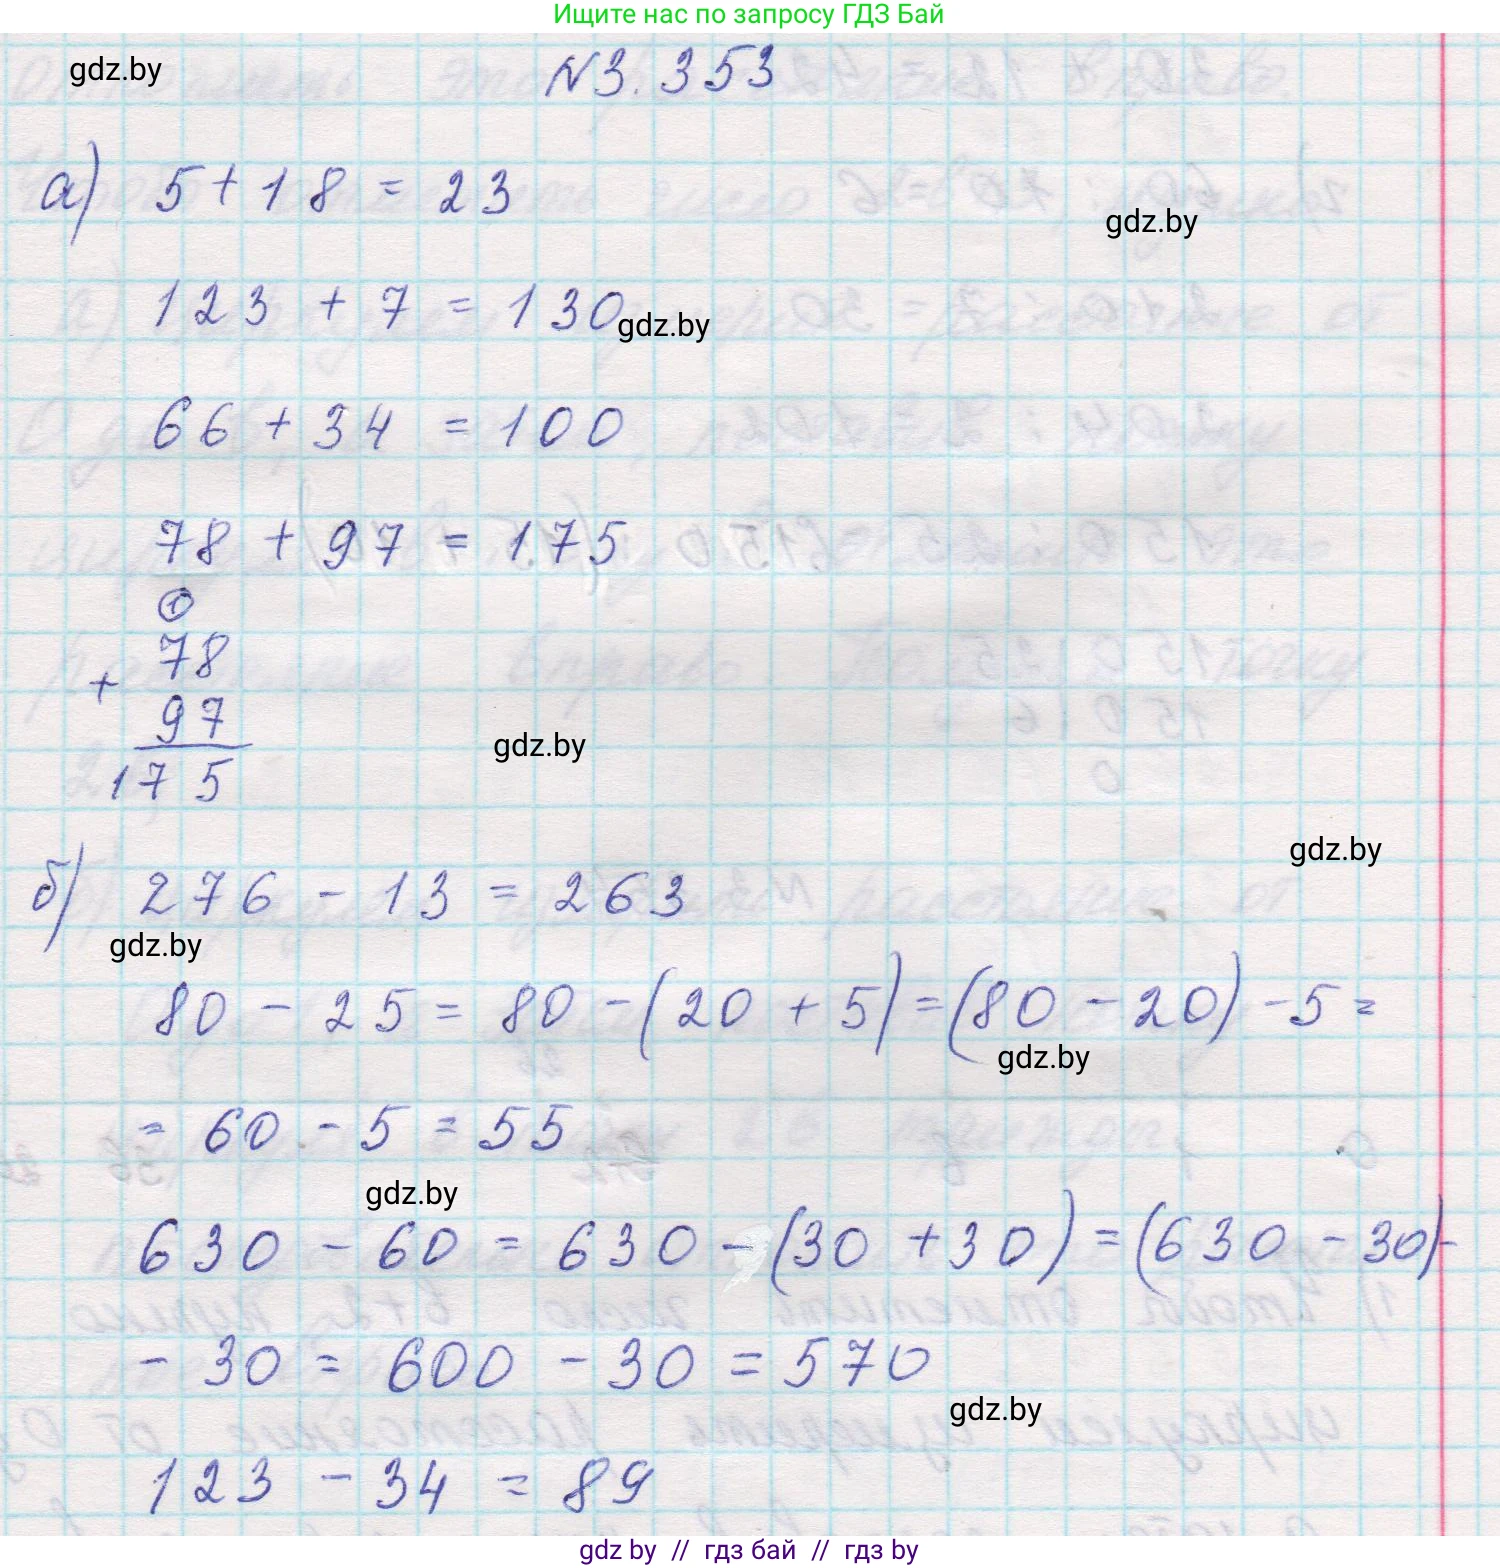 Ищите нас по запросу ГДЗ Бай
gdz.by
№3.353
а) 5 + 18 = 23
gdz.by
123 + 7 = 130
gdz.by
66 + 34 = 100
78 + 97 = 175
1
78
+
97
gdz.by
175
gdz.by
б) 276 - 13 = 263
gdz.by
80 - 25 = 80 - (20 + 5) = (80 - 20) - 5 =
gdz.by
= 60 - 5 = 55
gdz.by
630 - 60 = 630 - (30 + 30) = (630 - 30) -
- 30 = 600 - 30 = 570
gdz.by
123 - 34 = 89
gdz by // гдз бай // гдз by